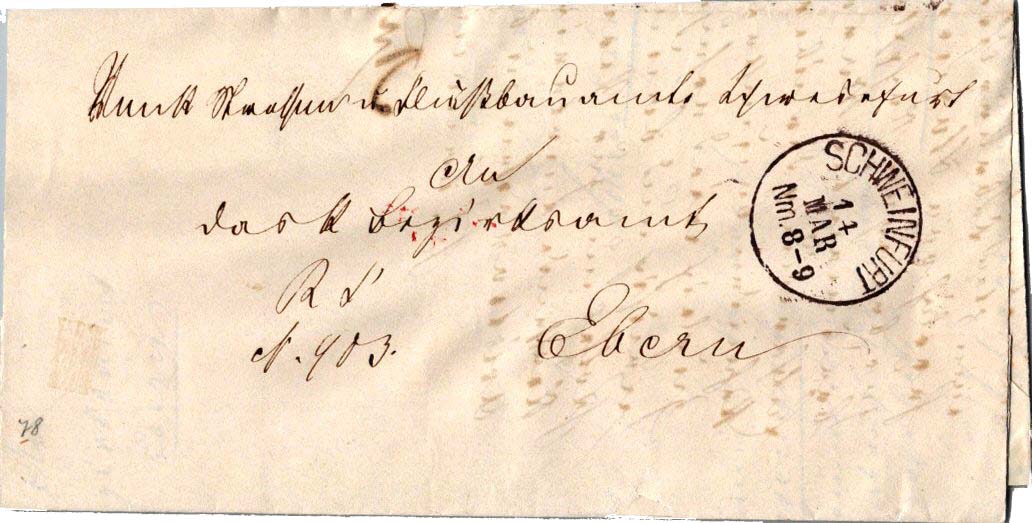 Vom K Strassen u Flußbauamte Schweinfurt
An
das K Bezirksamt
R S
N. 903.
Ebern
SCHWEINFURT
14
MAR
Nm. 8-9
78